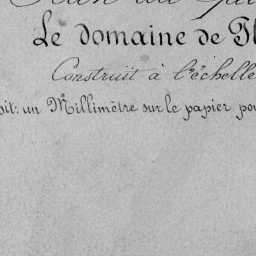 Le domaine de
Construit à l'échelle
un Millimètre sur le papier